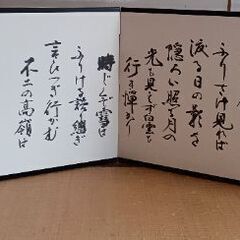 ふりさけ見れば
渡る日の影も
隠ろい照る月の
光も見えず白雲も
行き憚り
時じくぞ雪は
ふりける語り継ぎ
言ひつぎ行かむ
不二の高嶺は